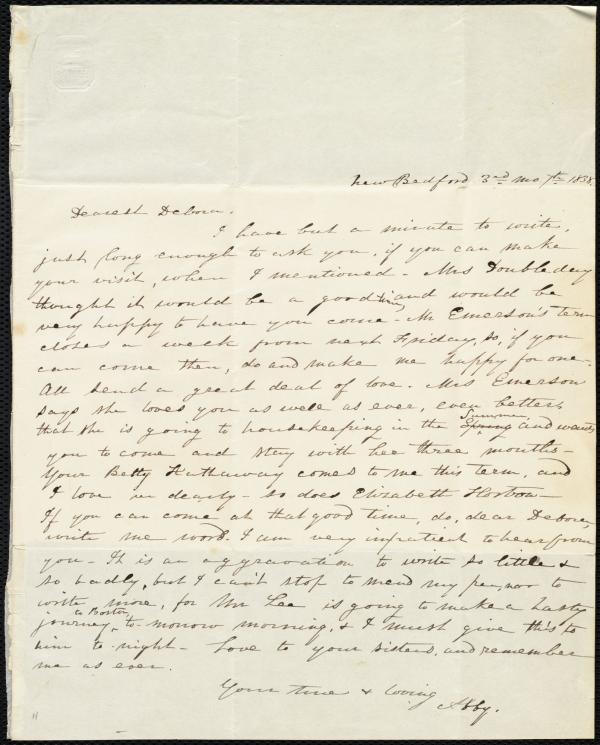 New Bedford 3rd mo 7th 1838.
Dearest Debora.
I have but a minute to write,
just long enough to ask you, if you can make
your visit, when I mentioned - Mrs Doubleday
thought it would be a good time, and would be
very happy to have you come - Mr Emerson's term
closes a week from next Friday, so, if you
can come then, do and make me happy for one -
All send a great deal of love. Mrs Emerson
says she loves you as well as ever, even better,
that she is going to housekeeping in the Spring Summer and wants
you to come and stay with her three months -
Your Betty Hathaway comes to me this term, and
I love her dearly - so does Elizabeth
If you can come at that good time, do, dear Debora,
write me word. I am very impatient to hear from
you - It is an aggravation to write so little &
so badly, but I can't stop to mend my pen, nor to
write more, for Mr Lee is going to make a hasty
journey to Boston to-morrow morning, & I must give this to
him to-night - Love to your sisters, and remember
me as ever.
Yours true & loving
Abby.